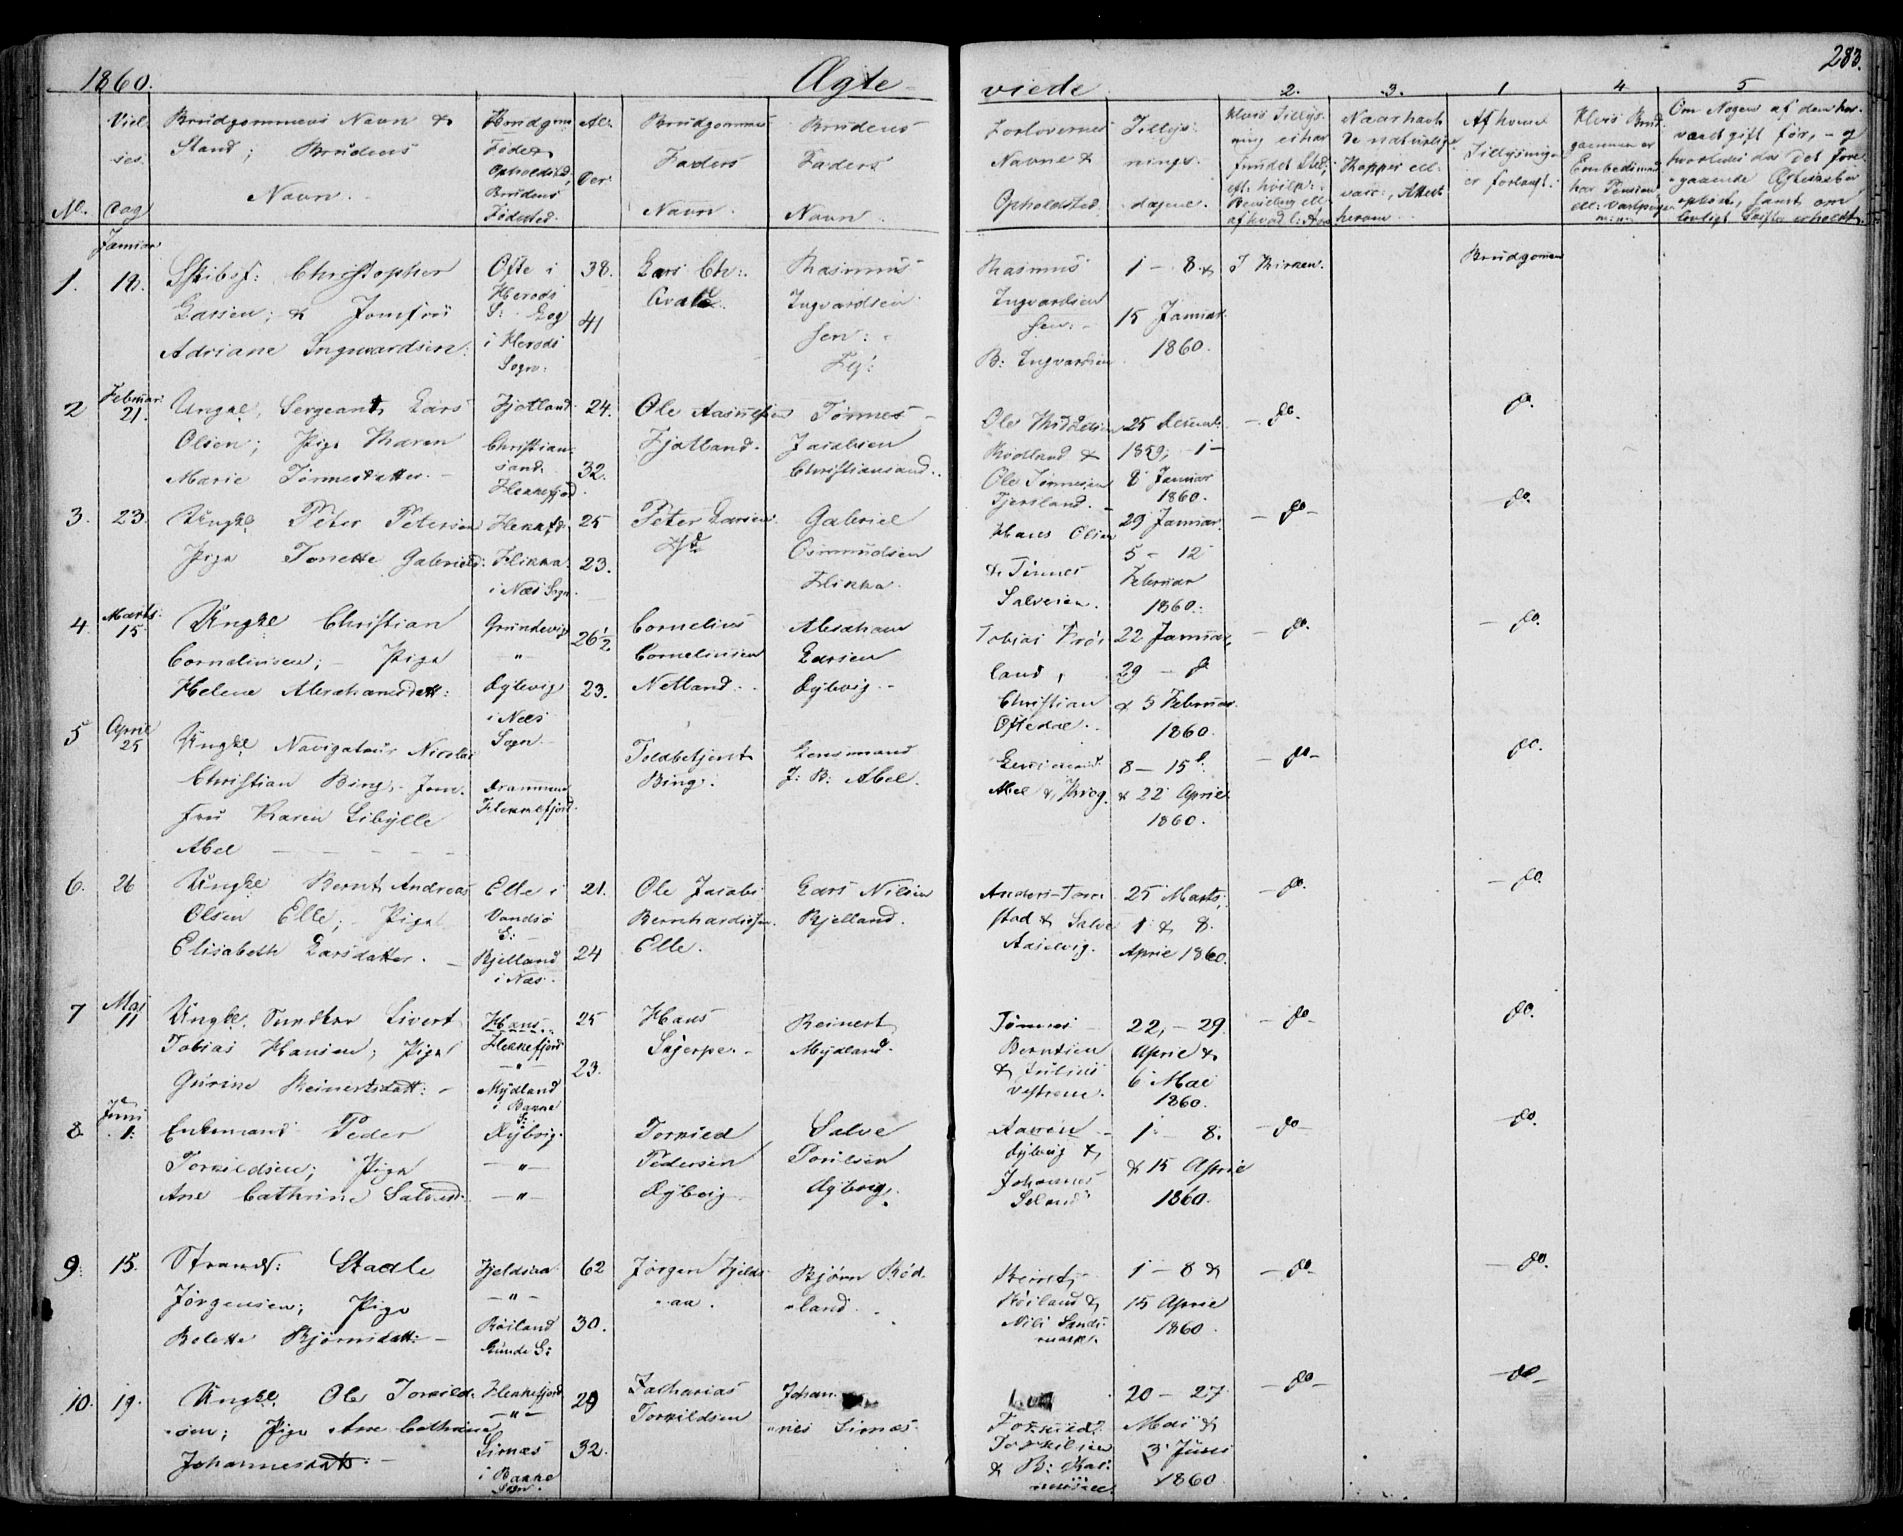 1860.
Ægte-
viede
283.
2. 3. 1 4. 5
No.
Viel-
ses
Dag
Brudgommens Navn &
Stand; Brudens
Navn.
Brudgom
Føde &
Opholdsted,
Brudens
Fødested.
Al-
der
Brudgommes
Faders
Navn.
Brudens
Faders
Navn.
Forlovernes
Navne &
Opholdsted.
Tillys-
nings-
dagene.
Hvis Tillys-
ning ei har
fundet Sted,
Naar havt
de naturlige
Kopper ell.
vacc:, Attest
herom
Af hvem
Tillysningen
er forlangt.
Hvis Brud-
gommen er
Embedsmand
har Pension
Om Nogen af dem har
været gift før, - og
hvorledes da det fore-
gaaende Ægteskab er
opløst, samt om
lovligt Skifte erholdt.
1. Januar 18. Skibsf: Christopher
Larsen; & Jomfru
Adriane Ingwardsen.
Ofte i
Herods
S: Log
i Herods
Sogn.
38.
41
Lars Ch:
Rasmus
Ingvardsen
sen:
Rasmus
Ingvardsen
sen:
B: Ingvardsen
1 - 8 &
15 Januar
1860.
I Kirken.
Brudgomen
2 Februar 21. Ungkl. Sergeant Lars
Olsen; Pige Karen
Marie Tønnesdatter.
Fjotland
Christian-
sand.
Flekkefjord
24.
32.
Ole Aasmundsen
Fjotland.
Tønnes
Jacobsen
Christiansand.
Ole
Rodland &
Ole Tønnesen
Tjersland.
25 Decemb.
1859, - 1 -
8 Januar
1860.
- do. do.
3. 23. Ungkl. Peter Petersen
Pige Tonette Gabrielsd:
Flekkefj:
Flikka
i Næs Sogn.
25
23.
Peter Larsen
Gabriel
Osmundsen
Flikka.
Hans Olsen
& Tønnes
Salvesen.
29 Januar.
5 - 12
Februar
1860.
- do - - do.
4. Marts 15. Ungkl. Christian
Corneliussen; - Pige
Helene Abrahamsdatt:
Grundevig
- " -
Dybvig
i Næs
Sogn.
26½
23.
Cornelius
Corneliusen
Netland.
Abraham
Larsen
Dybvig.
Tobias Røis
land,
Christian
Oftedal.
22 Januar,
29 - d
& 5 Februar
1860.
- do. - do.
5 April 25 Ungkl. Navigateur Nicolai
Christian Bing, Jom-
fru Karen Sibylle
Abel
Drammen
Flekkefjord.
Toldbetjent
Bing.
Lensmand
J: B: Abel.
Lensmand
Abel & Krog.
8 - 15
& 22 April
1860.
- do - do.
6. 26 Ungkl. Bernt Andreas
Olsen Elle; Pige
Elisabeth Larsdatter.
Elle i
Vandsø
S:
Kjelland
i Næs.
21.
24
Ole Jacobs
Bernhardssen
Elle.
Lars Nilsen
Kjelland.
Anders
stad & Salve
25 Marts,
1 & 8.
April 1860.
- do. - do.
7 Mai 11 Ungkl. Sivert
Tobias Hansen; Pige
Gurine Reinertsdatt:
Flekkefjord
Mydland
i Bakke
S:
25
23.
Hans
Skjerpe.
Reinert
Mydland.
Tønnes
Berntsen
& Julius
22, - 29
April &
6 Mai
1860.
- do - do.
8 Juni 1. Enkemand Peder
Torkildsen; Pige
Ane Cathrine Salvesd.
Dybvig.
- " -
- " -
Torkild
Pedersen
Dybvig
Salve
Poulsen
Dybvig.
Dybvig &
Johannes
Seland
1. - 8.
& 15 April
1860.
- do - - do.
9. 15. Strands: Staale
Jørgensen; Pige
Belette Bjørnsdatt:
Fjeldsaa
- " -
Røiland
Qvinds S:
62
30.
Jørgen Fjelds-
"aa.
Bjørn Rød-
"land.
Bernt
Røiland &
Nils Sands-
mark.
1 - 8 &
15 April
1860.
- do. - do.
10. 19. Ungkl. Ole Torkild-
sen; Pige Ane Cathrine
Johannesdatt:
Flekkefjord
- " -
Sirnæs
i Bakke
Sogn.
29
32.
Zacharias
Torkildsen
Johan-
"nes Sirnæs.
Torkild
Torkildsen
20 - 27
Mai &
3 Juni
1860.
- do - - do -